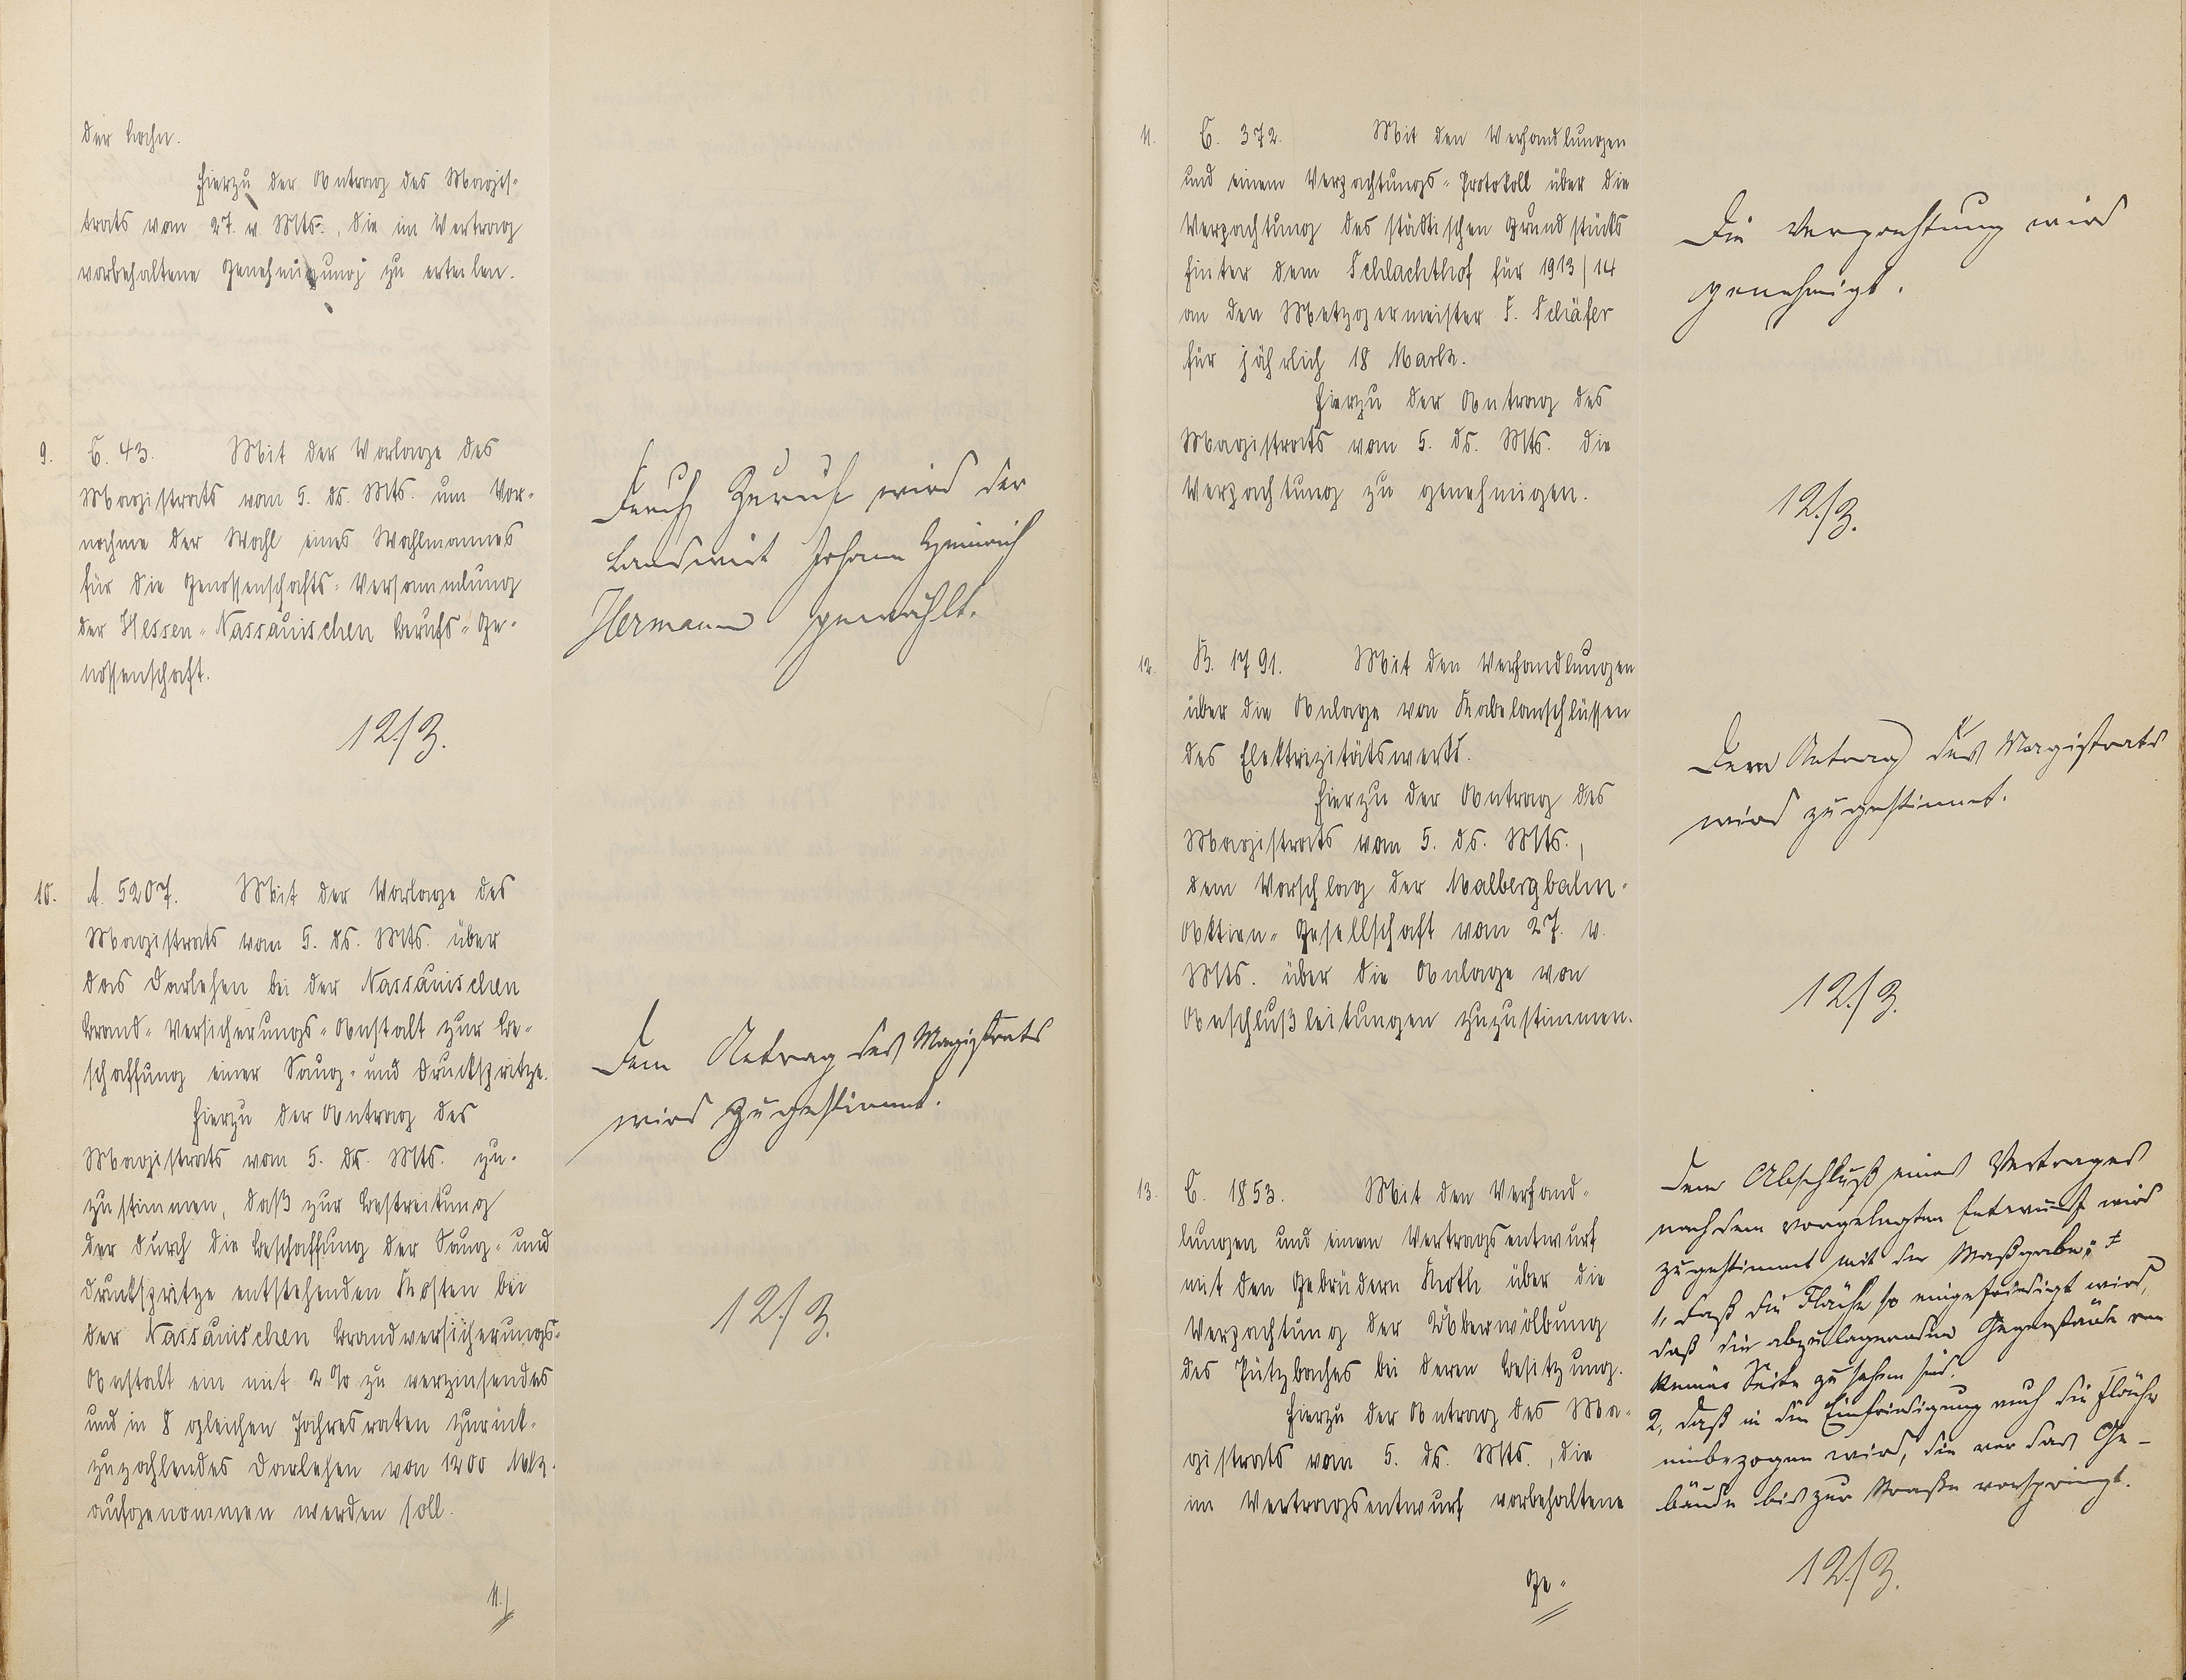 der Lahn.
Hierzu der Antrag des Magis-
trats vom 27. v. Mts., die im Vertrag
vorbehaltene Genehmigung zu erteilen.
9. C. 43. Mit der Vorlage des
Magistrats vom 5. ds. Mts. um Vor-
nahme der Wahl eines Wahlmannes
für die Genossenschafts-Versammlung
der Hessen-Nassauischen Berufs-Ge-
nossenschaft.
12/3.
Durch Zuruf wird der
Landwirt Johann Heinrich
Hermann gewählt.
10. A. 5207. Mit der Vorlage des
Magistrats vom 5. ds. Mts. über
das Darlehen bei der Nassauischen
Brand-Versicherungs-Anstalt zur Be-
schaffung einer Saug- und Druckspritze.
Hierzu der Antrag des
Magistrats vom 5. ds. Mts. zu-
zustimmen, daß zur Bestreitung
der durch die Beschaffung der Saug- und
Druckspritze entstehenden Kosten bei
der Nassauischen Brandversicherungs-
Anstalt ein mit 2 % zu verzinsendes
und in 8 gleichen Jahresraten zurück-
zuzahlendes Darlehen von 1200 Mk.
aufgenommen werden soll.
11.)
Dem Antrag des Magistrats
wird zugestimmt.
12/3.
11. C. 372. Mit den Verhandlungen
und einem Verpachtungs-Protokoll über die
Verpachtung des städtischen Grundstücks
hinter dem Schlachthof für 1913/14
an den Metzgermeister F. Schäfer
für jährlich 18 Mark.
Hierzu der Antrag des
Magistrats vom 5. ds. Mts. die
Verpachtung zu genehmigen.
Die Verpachtung wird
genehmigt.
12/3.
12. B. 1791. Mit den Verhandlungen
über die Anlage von Kabelanschlüssen
des Elektrizitätswerks.
Hierzu der Antrag des
Magistrats vom 5. ds. Mts.,
dem Vorschlag der Malbergbahn-
Aktien-Gesellschaft vom 27. v.
Mts. über die Anlage von
Anschlußleitungen zuzustimmen.
Dem Antrag des Magistrats
wird zugestimmt.
12/3.
13. C. 1853. Mit den Verhand-
lungen und einem Vertragsentwurf
mit den Gebrüdern Roth über die
Verpachtung der Überwölbung
des Pützbaches bei deren Besitzung.
Hierzu der Antrag des Ma-
gistrats vom 5. ds. Mts., die
im Vertragsentwurf vorbehaltene
Ge-
Dem Abschluß eines Vertrages
nach dem vorgelegten Entwurf wird
zugestimmt mit der Maßgabe:
1, daß die Fläche so eingefriedigt wird,
daß die abzulagernden Gegenstände von
keiner Seite zu sehen sind.
2, daß in die Einfriedigung auch die Fläche
einbezogen wird, die vor das Ge-
bäude bis zur Straße vorspringt.
12/3.